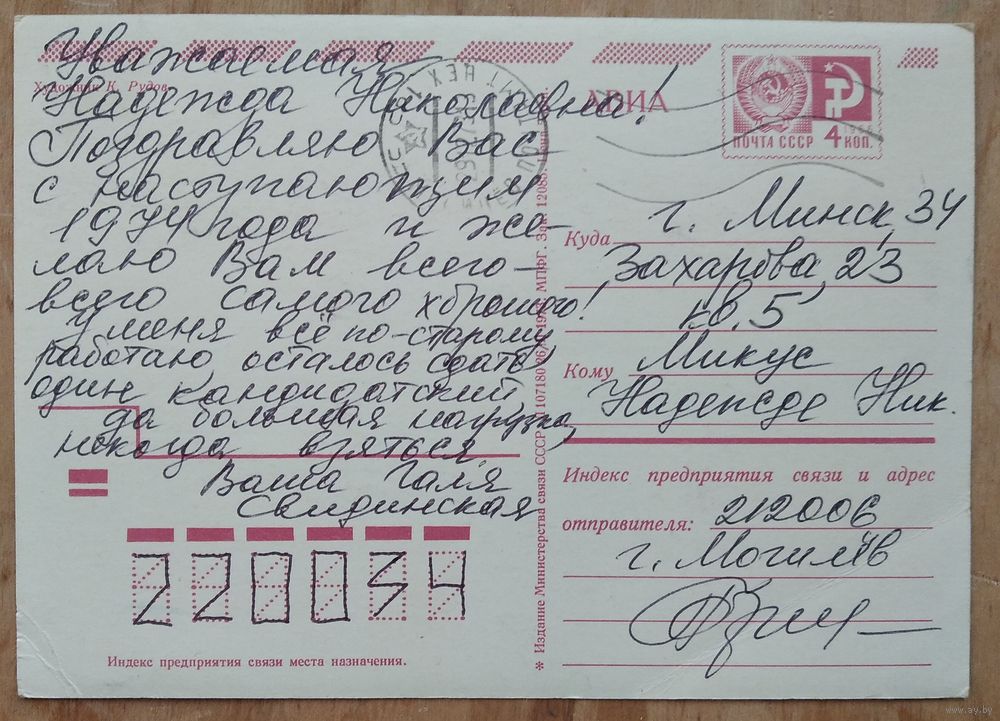 Уважаемая
Художник К. Рудов
Надежда Николавна!
Поздравляю Вас
с наступающим
1974 года и же-
лаю Вам всего-
всего самого хорошего!
У меня всё по-старому
работаю осталось сдать
один кандидатский,
да большая нагрузка,
некогда взяться.
Ваша Галя
Свидинская
220034
Индекс предприятия связи места назначения.
АВИА
ПОЧТА СССР
4 КОП.
1966
Куда г. Минск, 34
Захарова, 23
кв. 5
Кому Микус
Надежде Ник.
Индекс предприятия связи и адрес
отправителя: 212006
г. Могилёв
www.ay.by